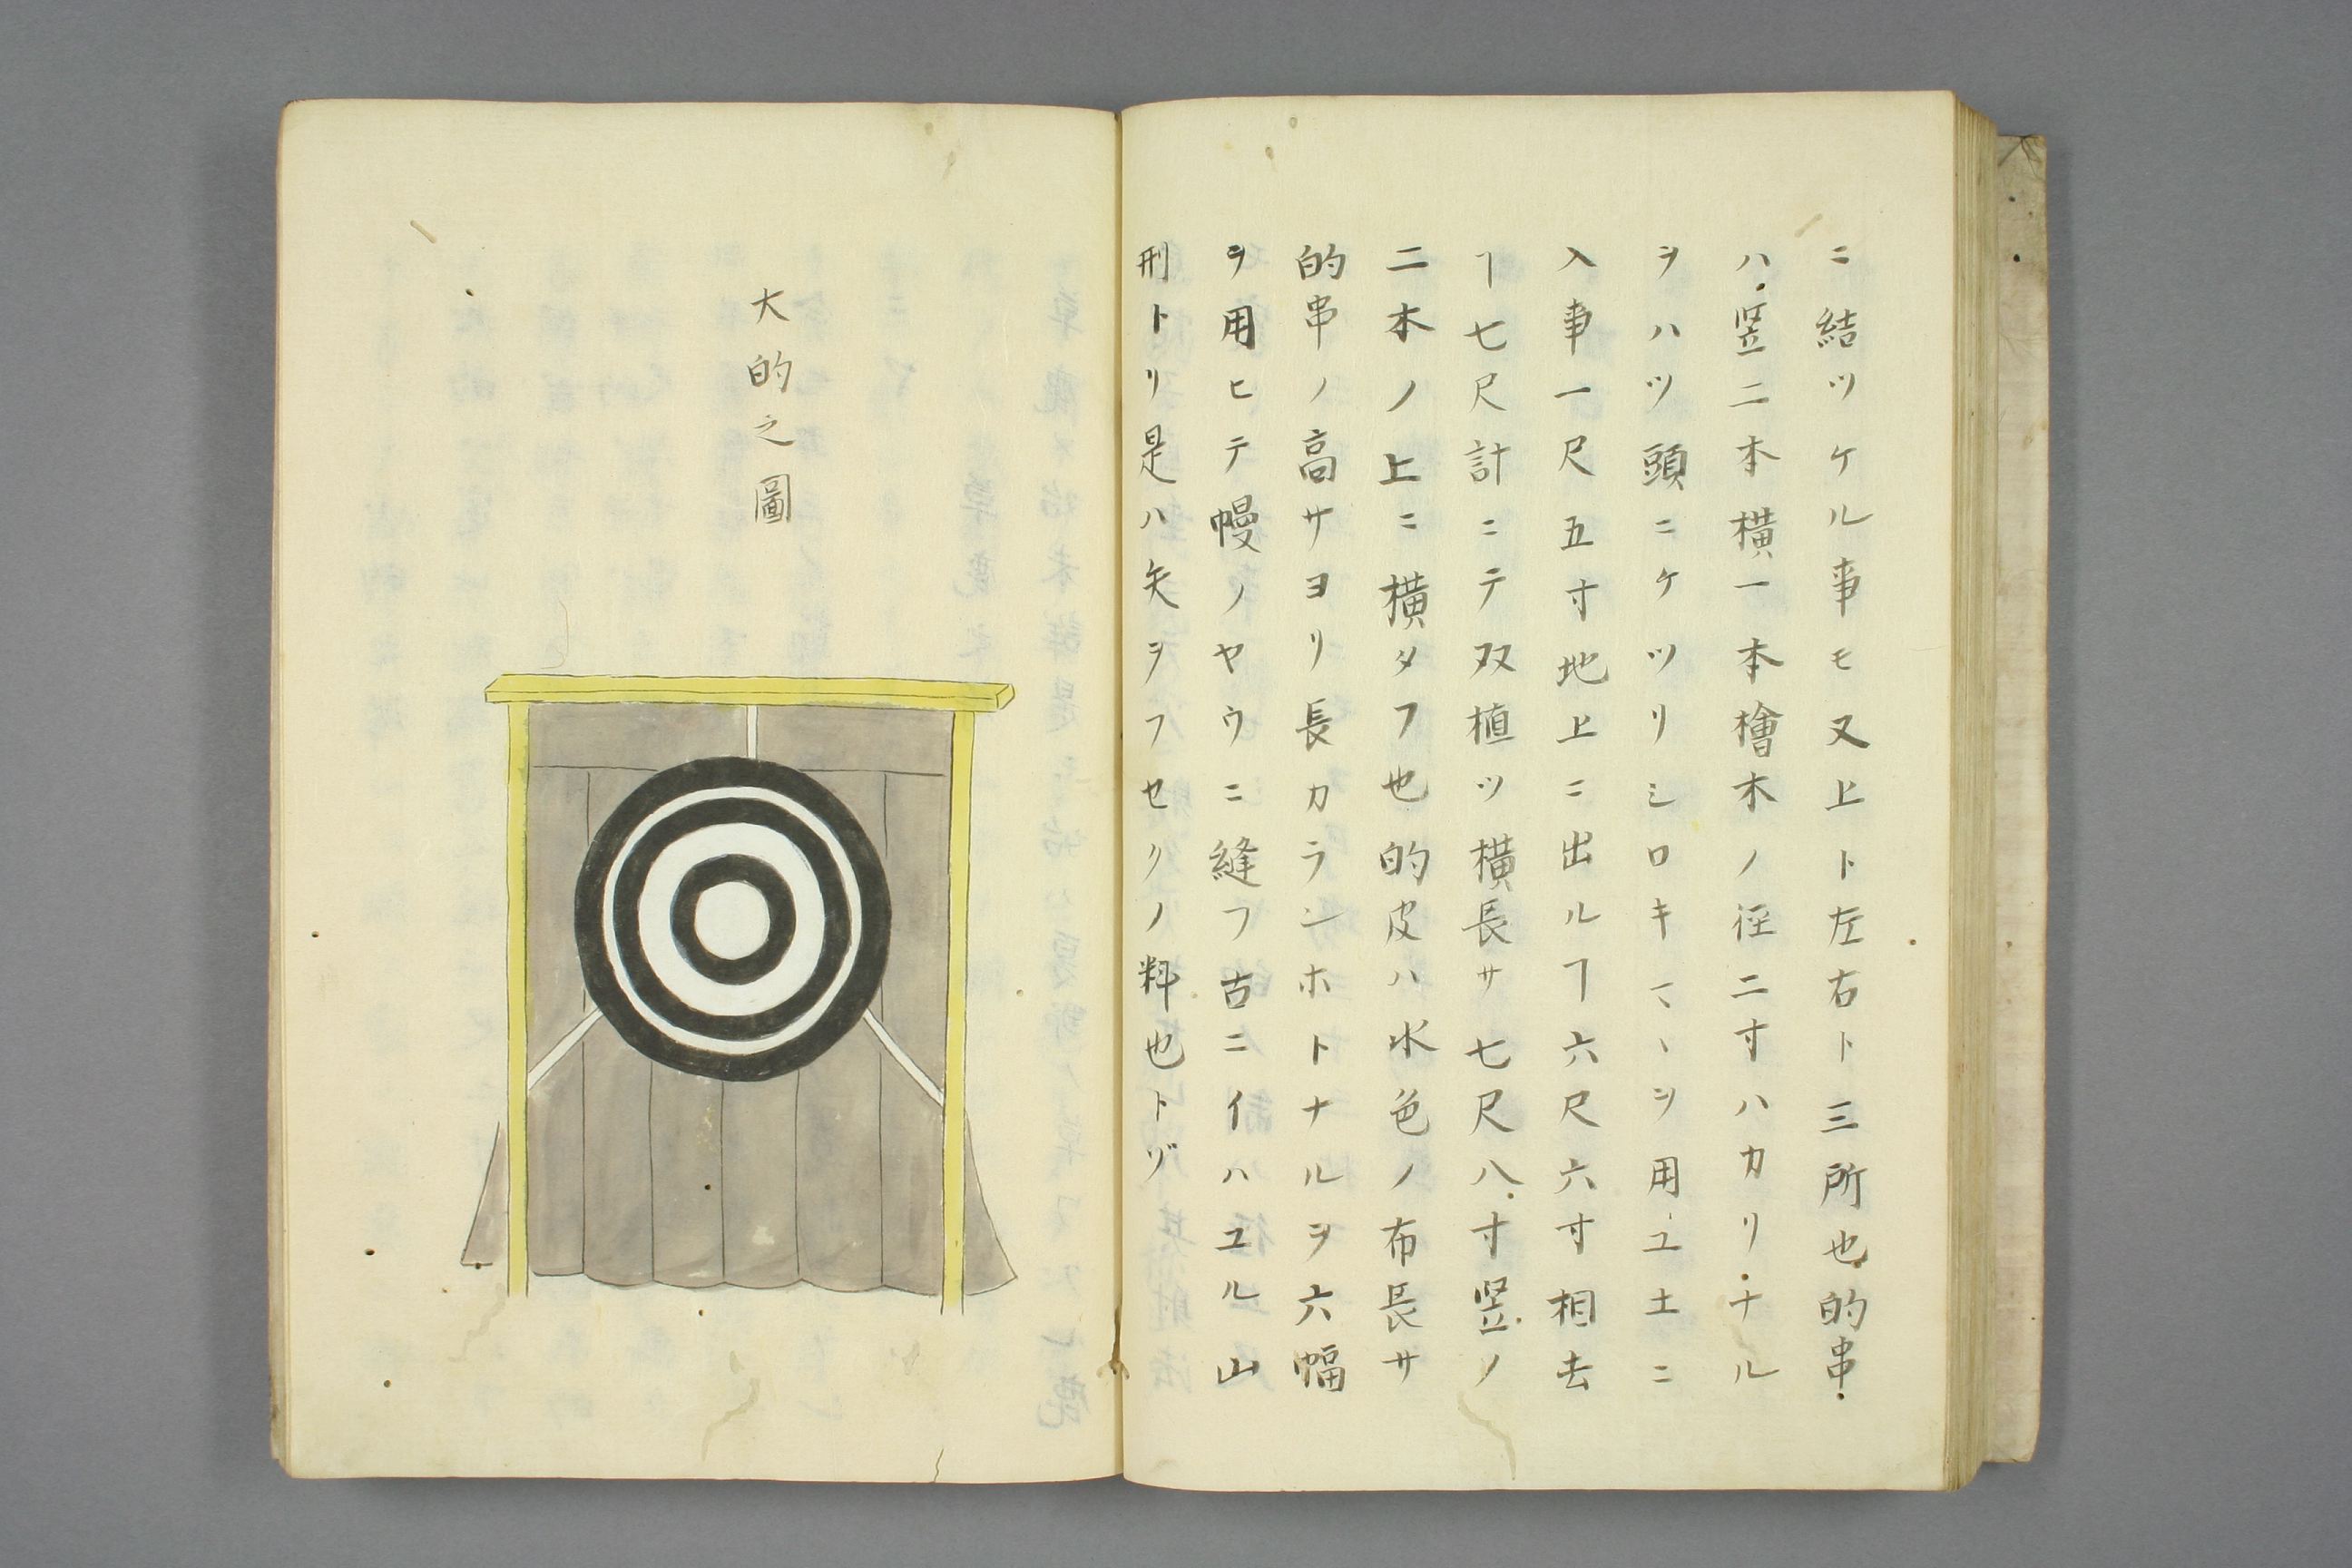 ニ結ツケル事モ又上ト左右ト三所也的串
ハ竪二本横一本檜木ノ径二寸ハカリナル
ヲハツ頭ニケツリシロキマヽヲ用ユ土ニ
入事一尺五寸地上ニ出ルヿ六尺六寸相去
ヿ七尺計ニテ双植ツ横長サ七尺八寸竪ノ
二本ノ上ニ横タフ也的皮ハ水色ノ布長サ
的串ノ高サヨリ長カランホトナルヲ六幅
ヲ用ヒテ幔ノヤウニ縫フ古ニイハユル山
刑トリ是ハ矢ヲフセクノ料也トゾ
大的之圖